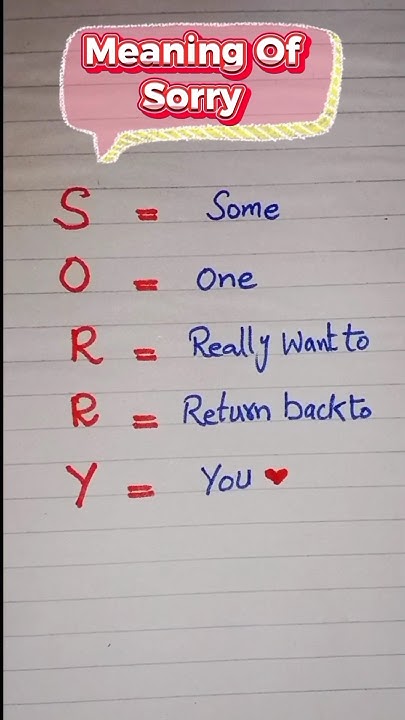 Meaning Of
Sorry
S = Some
O = one
R = Really Want to
R = Return back to
Y = You